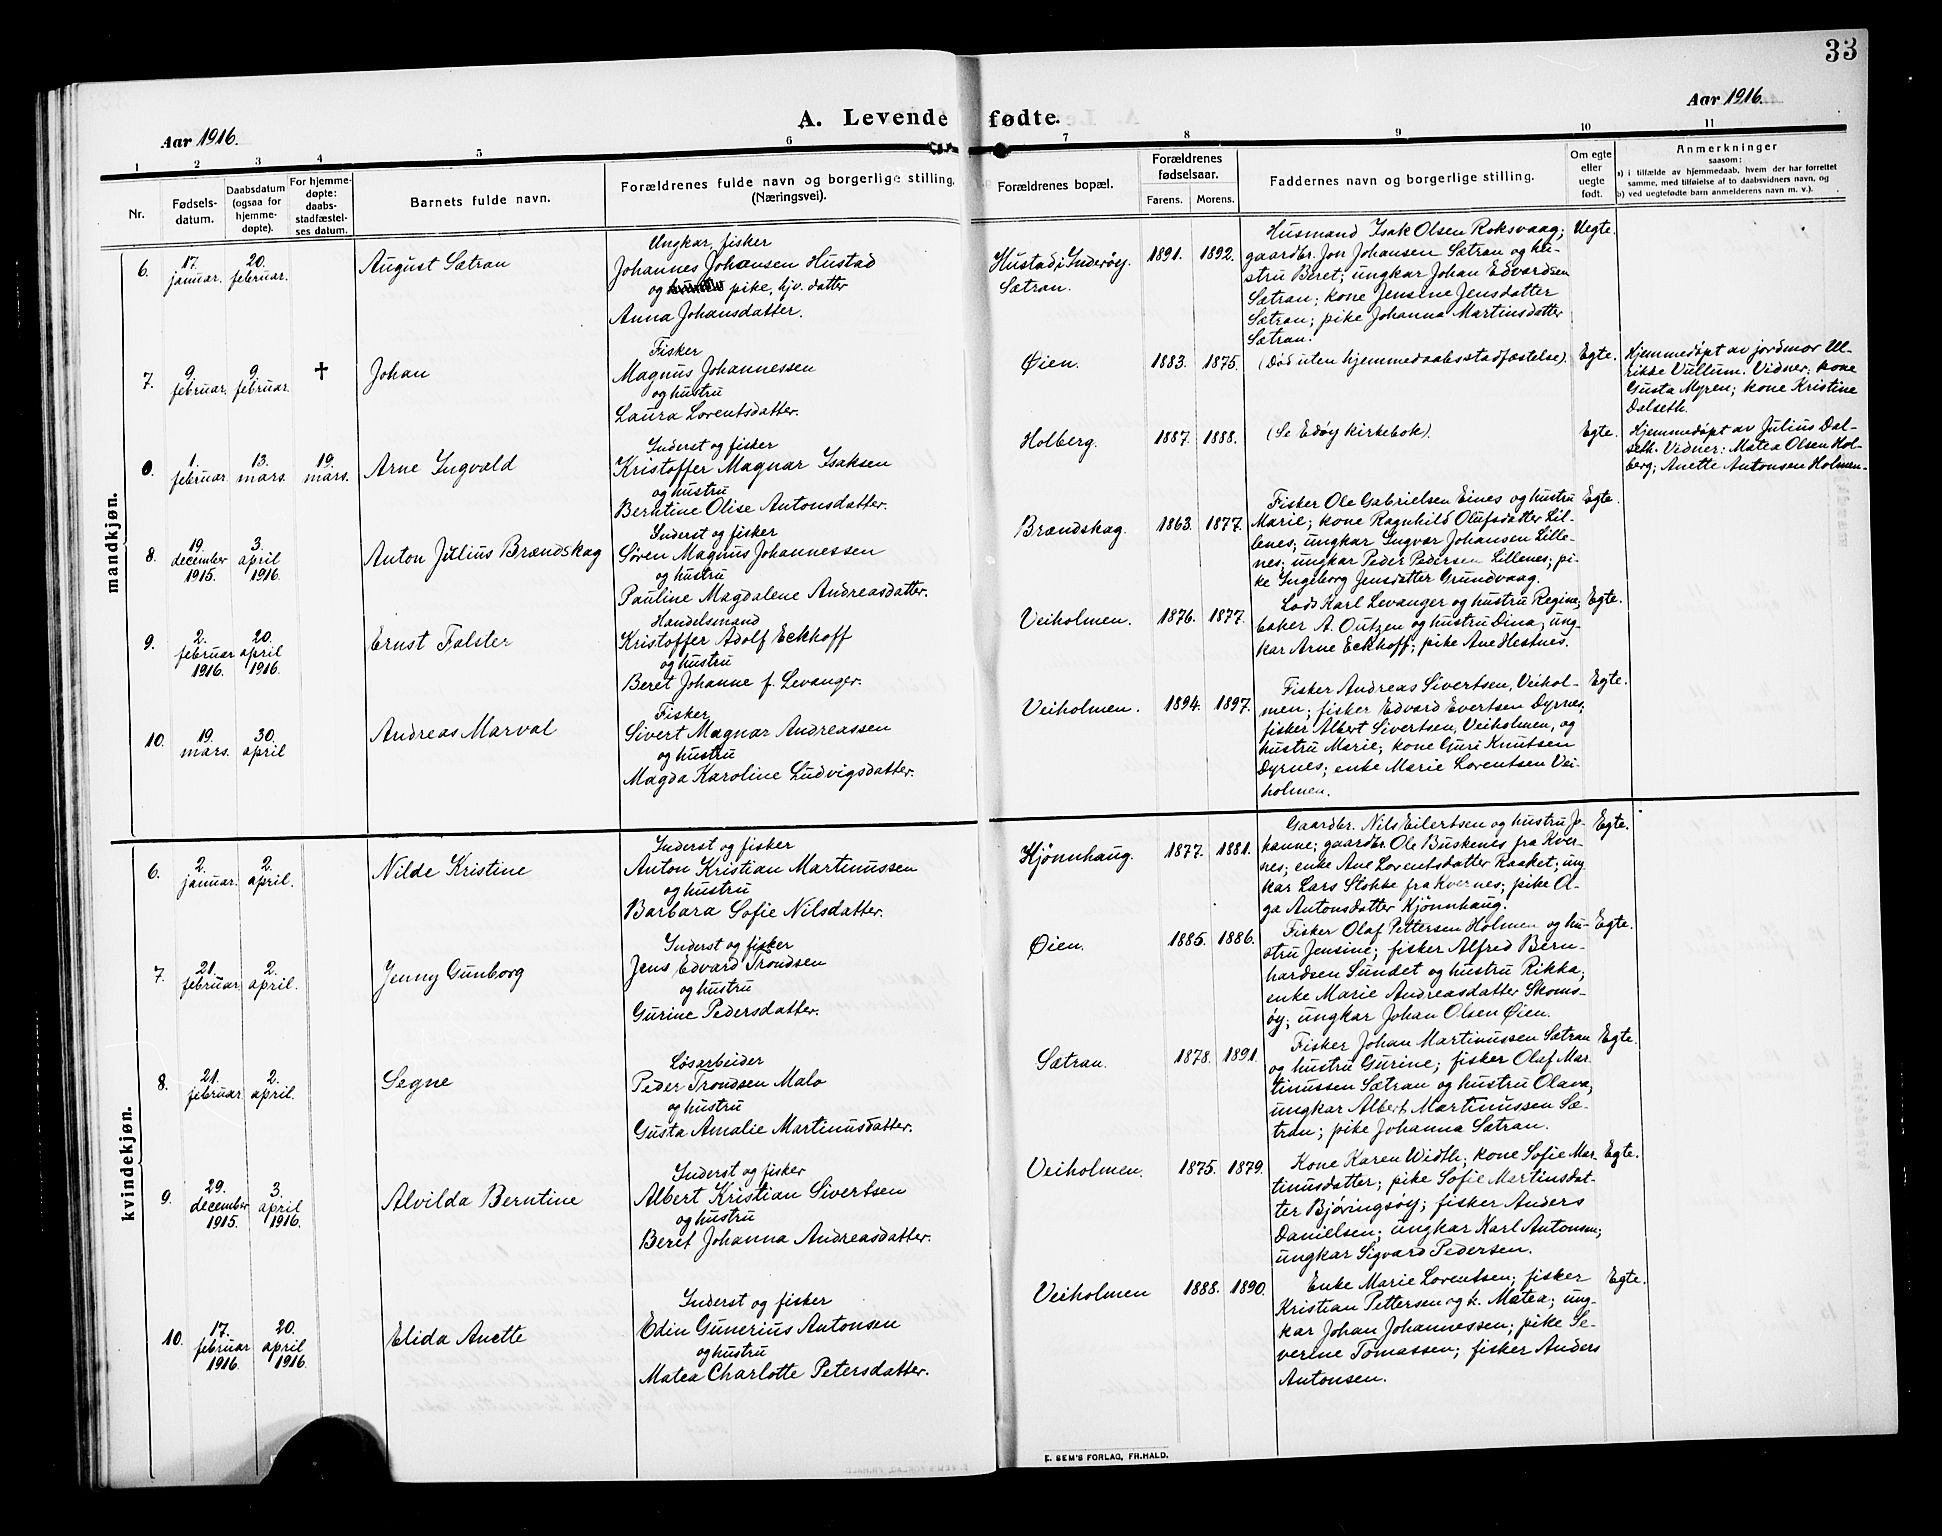 33
Aar 1916.
A. Levende fødte.
Aar 1916.
1 2 3 4 5 6 7 8 9 10 11
Nr.
Fødsels-
datum.
Daabsdatum
(ogsaa for
hjemme-
døpte).
For hjemme-
døpte:
daabs-
stadfæstel-
ses datum.
Barnets fulde navn.
Forældrenes fulde navn og borgerlige stilling.
(Næringsvei).
Forældrenes bopæl.
Forældrenes
fødselsaar.
Farens. Morens.
Faddernes navn og borgerlige stilling.
Om egte
eller
uegte
født.
Anmerkninger
saasom:
a) i tilfælde av hjemmedaab, hvem der har forrettet
samme, med tilføielse af to daabsvidners navn, og
b) ved uegtefødte barn anmelderens navn m. v.).
mandkjøn.
6.
17.
januar.
20.
februar.
August Sætran
Ungkar, fisker
Johannes Johansen Hustad
og pike, hjv. datter
Anna Johansdatter.
Hustad i Inderøy.
Sætran.
1891. 1892.
Husmand Isak Olsen Roksvaag;
gaardbr. Jon Johansen Sætran og hu-
stru Beret; ungkar Johan Edvardsen
Sætran; kone Jensine Jensdatter
Sætran; pike Johanna Martinsdatter
Sætran.
Uegte.
7.
9.
februar.
9.
februar.
†
Johan
Fisker
Magnus Johannessen
og hustru
Laura Lorentsdatter.
Øien.
1883. 1875.
(Død uten hjemmedaabsstadfæstelse).
Egte.
Hjemmedøpt av jordmor Ul-
rikke Vullum. Vidner: kone
Gusta Myren; kone Kristine
Dalseth.
0.
1.
februar.
13.
mars.
19.
mars.
Arne Ingvald
Inderst og fisker
Kristoffer Magnar Isaksen
og hustru
Berntine Olise Antonsdatter.
Holberg.
1887. 1888.
(Se Edøy kirkebok).
Egte.
Hjemmedøpt av Julius Dal-
seth. Vidner: Matea Olsen Hol-
berg; Anette Antonsen Holmen.
8.
19.
december
1915.
3.
april
1916.
Anton Julius Brændskag
Inderst og fisker
Søren Magnus Johannessen
og hustru
Pauline Magdalene Andreasdatter.
Brændskag.
1863. 1877.
Fisker Ole Gabrielsen Eines og hustru
Marie; kone Ragnhild Olufsdatter Lil-
lenes; ungkar Ingvar Johansen Lille-
nes; ungkar Peder Pedersen Lillenes; pi-
ke Ingeborg Jensdatter Grundvaag.
Egte.
9.
2.
februar
1916.
20.
april
1916.
Ernst Falster
Handelsmand
Kristoffer Adolf Eckhoff
og hustru
Beret Johanne f. Levanger.
Veiholmen.
1876. 1877.
Lods Karl Levanger og hustru Regine;
baker A. Outzen og hustru Dina; ung-
kar Arne Eckhoff; pike Ane Hestnes.
Egte.
10.
19.
mars.
30.
april
Andreas Marval
Fisker
Sivert Magnar Andreassen
og hustru
Magda Karoline Ludvigsdatter.
Veiholmen.
1894. 1897.
Fisker Andreas Sivertsen, Veihol-
men; fisker Edvard Evertsen Dyrnes;
fisker Albert Sivertsen, Veiholmen, og
hustru Marie; kone Guri Knutsen
Dyrnes; enke Marie Lorentsen Vei-
holmen.
Egte.
kvindekjøn.
6.
2.
januar.
2.
april.
Nilde Kristine
Inderst og fisker
Anton Kristian Martinussen
og hustru
Barbara Sofie Nilsdatter.
Kjønnhaug.
1877. 1881.
Gaardbr. Nils Eilertsen og hustru Jo-
hanne; gaardbr. Ole Buskenes fra Kver-
nes; enke Ane Lorentsdatter Raaket; ung
kar Lars Stokke fra Kvernes; pike Ol-
ga Antonsdatter Kjønnhaug.
Egte.
7.
21.
februar.
2.
april.
Jenny Gunborg
Inderst og fisker
Jens Edvard Trondsen
og hustru
Gurine Pedersdatter.
Øien.
1885. 1886.
Fisker Olaf Pettersen Holmen og hu-
stru Jensine; fisker Alfred Bern-
hardsen Sundet og hustru Rikka;
enke Marie Andreasdatter Skoms-
øy; ungkar Johan Olsen Øien.
Egte.
8.
21.
februar
2.
april.
Segne
Løsarbeider
Peder Trondsen Malo
og hustru
Gusta Amalie Martinusdatter.
Sætran.
1878. 1891.
Fisker Johan Martinussen Sætran
og hustru Gurine; fisker Olaf Mar-
tinussen Sætran og hustru Olava;
ungkar Albert Martinussen Sæ-
tran; pike Johanna Sætran.
Egte.
9.
29.
december
1915.
3.
april
1916.
Alvilda Berntine
Inderst og fisker
Albert Kristian Sivertsen
og hustru
Beret Johanna Andreasdatter.
Veiholmen.
1875. 1879.
Kone Karen Width; kone Sofie Mar-
tinusdatter; pike Sofie Martinsdat-
ter Bjøringsøy; fisker Anders
Danielsen; ungkar Karl Antonsen;
ungkar Sigvard Pedersen.
Egte.
10.
17.
februar
1916.
20.
april
1916.
Elida Anette
Inderst og fisker
Edin Gunerius Antonsen
og hustru
Matea Charlotte Petersdatter.
Veiholmen
1888. 1890.
Enke Marie Lorentsen; fisker
Kristian Pettersen og k. Matea; ung-
kar Johan Johannessen; pike Se-
verine Tomassen; fisker Anders
Antonsen.
Egte.
E. SEM'S FORLAG, FR.HALD.